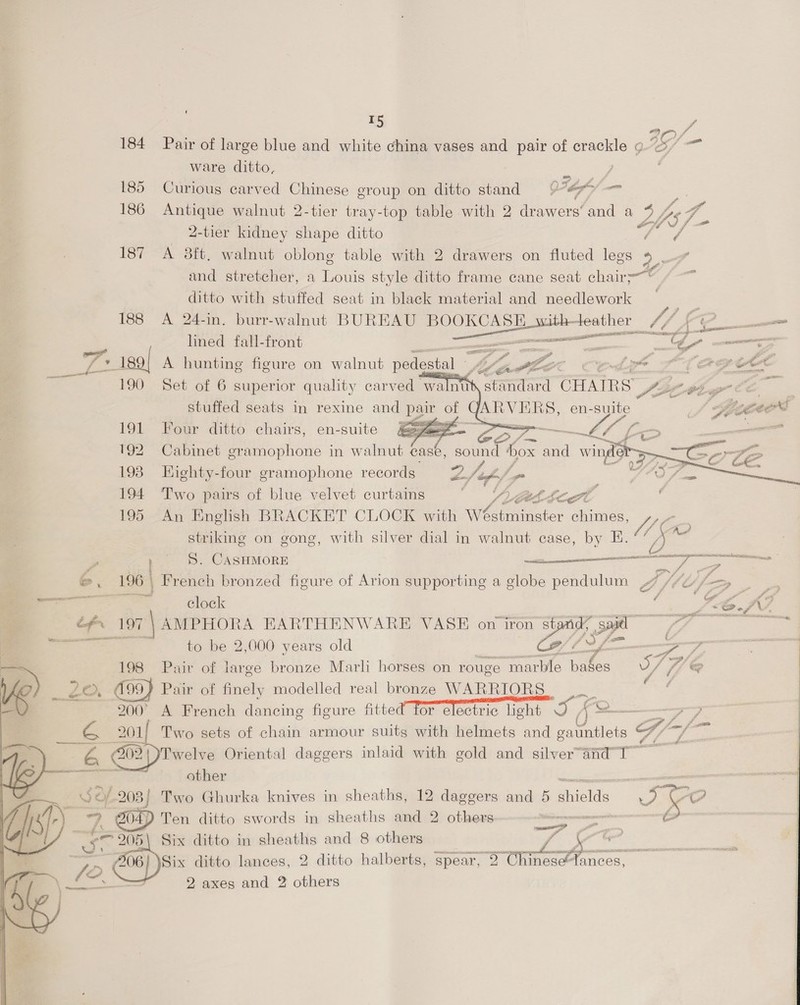 15
184 Pair of large blue and white china vases and pair of crackle
ware ditto,
185 Curious carved Chinese group on ditto stand
186 Antique walnut 2-tier tray-top table with 2 drawers and a
2-tier kidney shape ditto
187 A 3ft. walnut oblong table with 2 drawers on fluted legs
and stretcher, a Louis style ditto frame cane seat chair,
ditto with stuffed seat in black material and needlework
188 A 24-in. burr-walnut BUREAU BOOKCASE with leather
lined fall-front
189 A hunting figure on walnut pedestal
190 Set of 6 superior quality carved walnut standard CHAIRS
stuffed seats in rexine and pair of CARVERS, en-suite
191 Four ditto chairs, en-suite
192 Cabinet gramophone in walnut case, sound box and winder
193 Eighty-four gramophone records
194 Two pairs of blue velvet curtains
195 An English BRACKET CLOCK with Westminster chimes,
striking on gong, with silver dial in walnut case, by E.
S. CASHMORE
196 French bronzed figure of Arion supporting a globe pendulum
clock
197 AMPHORA EARTHENWARE VASE on iron stand, said
to be 2,000 years old
198 Pair of large bronze Marli horses on rouge marble bases
20, 199 Pair of finely modelled real bronze WARRIORS
200 A French dancing figure fitted for electric light
6 201 Two sets of chain armour suits with helmets and gauntlets
6 202 Twelve Oriental daggers inlaid with gold and silver and 1
other
203 Two Ghurka knives in sheaths, 12 daggers and 5 shields
7 204 Ten ditto swords in sheaths and 2 others
205 Six ditto in sheaths and 8 others
206 Six ditto lances, 2 ditto halberts, spear, 2 Chinese lances,
2 axes and 2 others